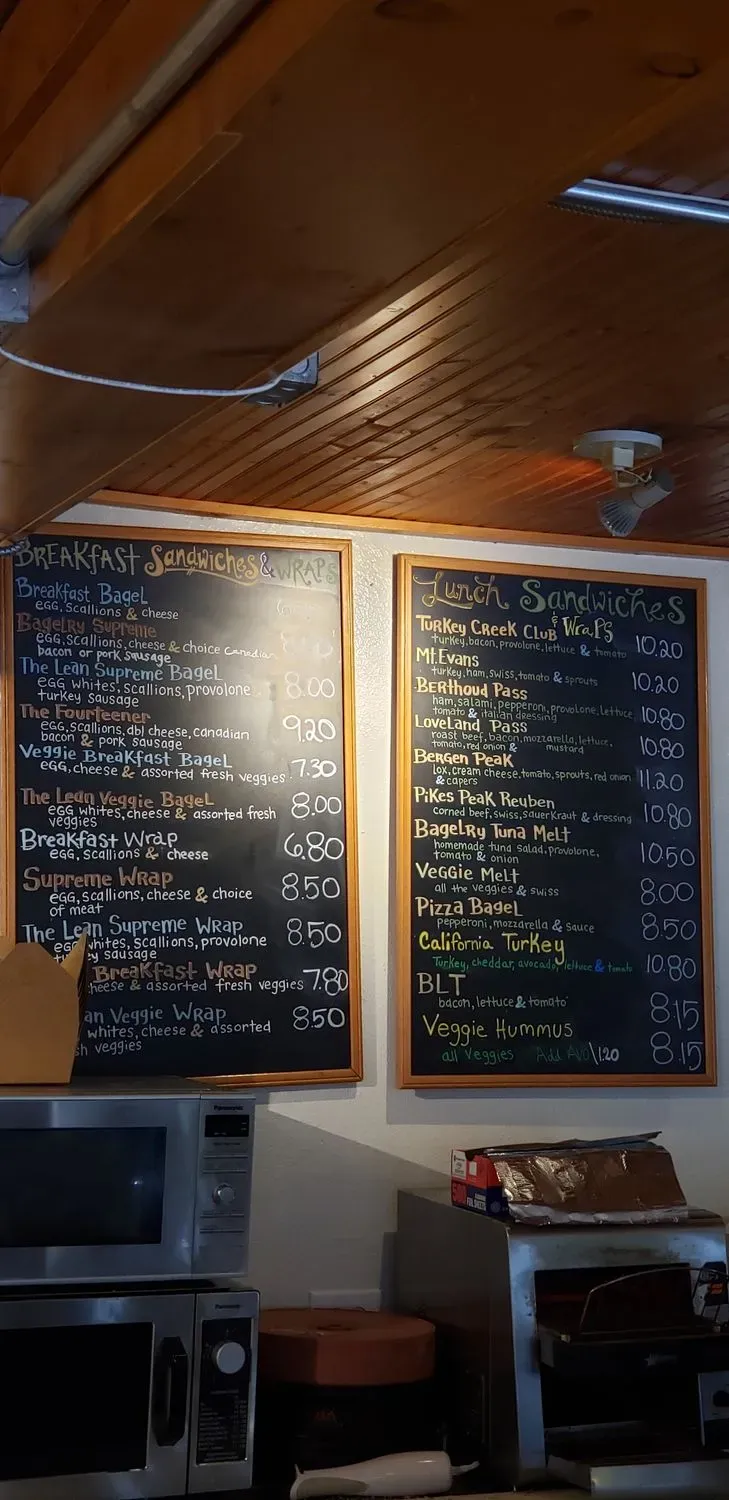 BREAKfAST Sandwiches & WRAPS
Breakfast Bagel
egg, scallions & cheese
Bagelry Supreme
egg, scallions, cheese & choice Canadian
bacon or pork sausage
The Lean Supreme Bagel
egg whites, scallions, provolone 8.00
turkey sausage
The Fourteener
egg, scallions, dbl cheese, canadian 9.20
bacon & pork sausage
Veggie Breakfast Bagel
egg, cheese & assorted fresh veggies 7.30
The Lean Veggie Bagel
egg whites, cheese & assorted fresh 8.00
veggies
Breakfast Wrap
egg, scallions & cheese 6.80
Supreme Wrap
egg, scallions, cheese & choice 8.50
of meat
The Lean Supreme Wrap
whites, scallions, provolone 8.50
sausage
Breakfast Wrap
& assorted fresh veggies 7.80
Veggie Wrap
whites, cheese & assorted 8.50
veggies
Lunch Sandwiches
& Wraps
Turkey Creek Club 10.20
turkey, bacon, provolone, lettuce & tomato
Mt. Evans
turkey, ham, swiss, tomato & sprouts 10.20
Berthoud Pass
ham, salami, pepperoni, provolone, lettuce 10.80
tomato & italian dressing
Loveland Pass
roast beef, bacon, mozzarella, lettuce, 10.80
tomato, red onion & mustard
Bergen Peak
lox, cream cheese, tomato, sprouts, red onion 11.20
& capers
Pikes Peak Reuben
corned beef, swiss, sauerkraut & dressing 10.80
Bagelry Tuna Melt
homemade tuna salad, provolone, 10.50
tomato & onion
Veggie Melt
all the veggies & swiss 8.00
Pizza Bagel
pepperoni, mozzarella & sauce 8.50
California Turkey
Turkey, cheddar, avocado, lettuce & tomato 10.80
BLT
bacon, lettuce & tomato 8.15
Veggie Hummus
all veggies Add Avo 1.20 8.15
Panasonic
Panasonic
500
FOIL SHEETS